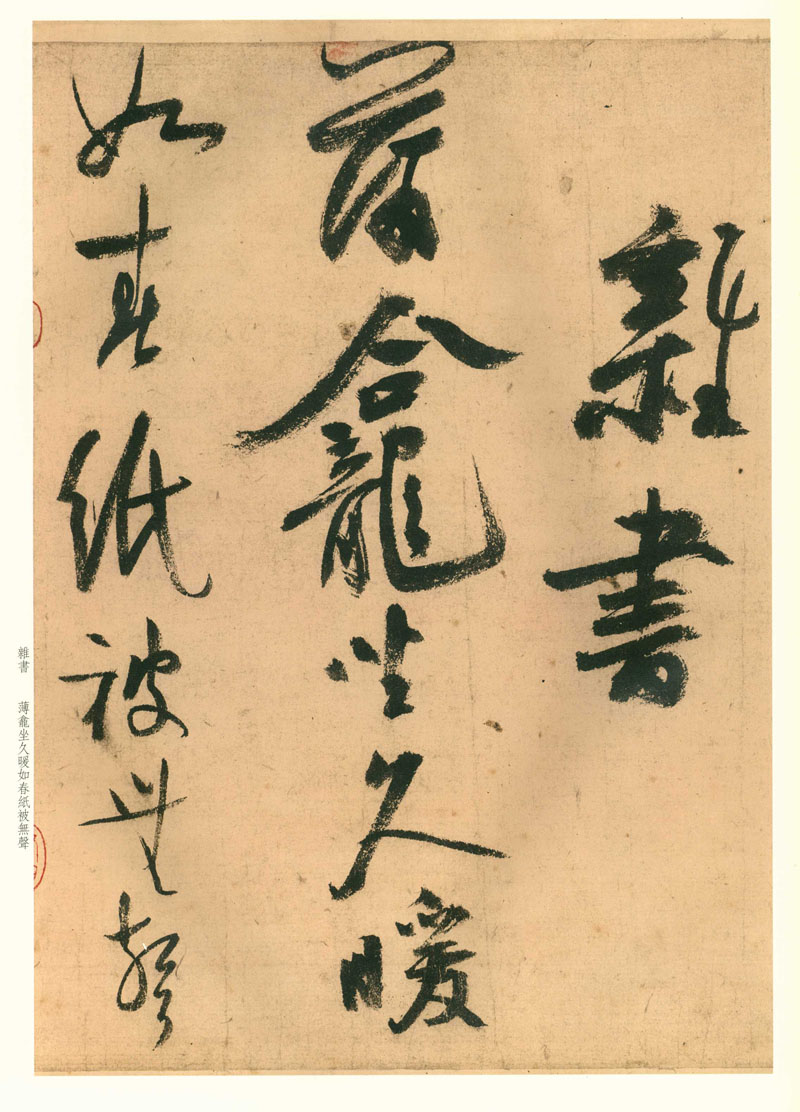 雜書
薄龕坐久暖
如春紙被無聲
雜書　薄龕坐久暖如春紙被無聲